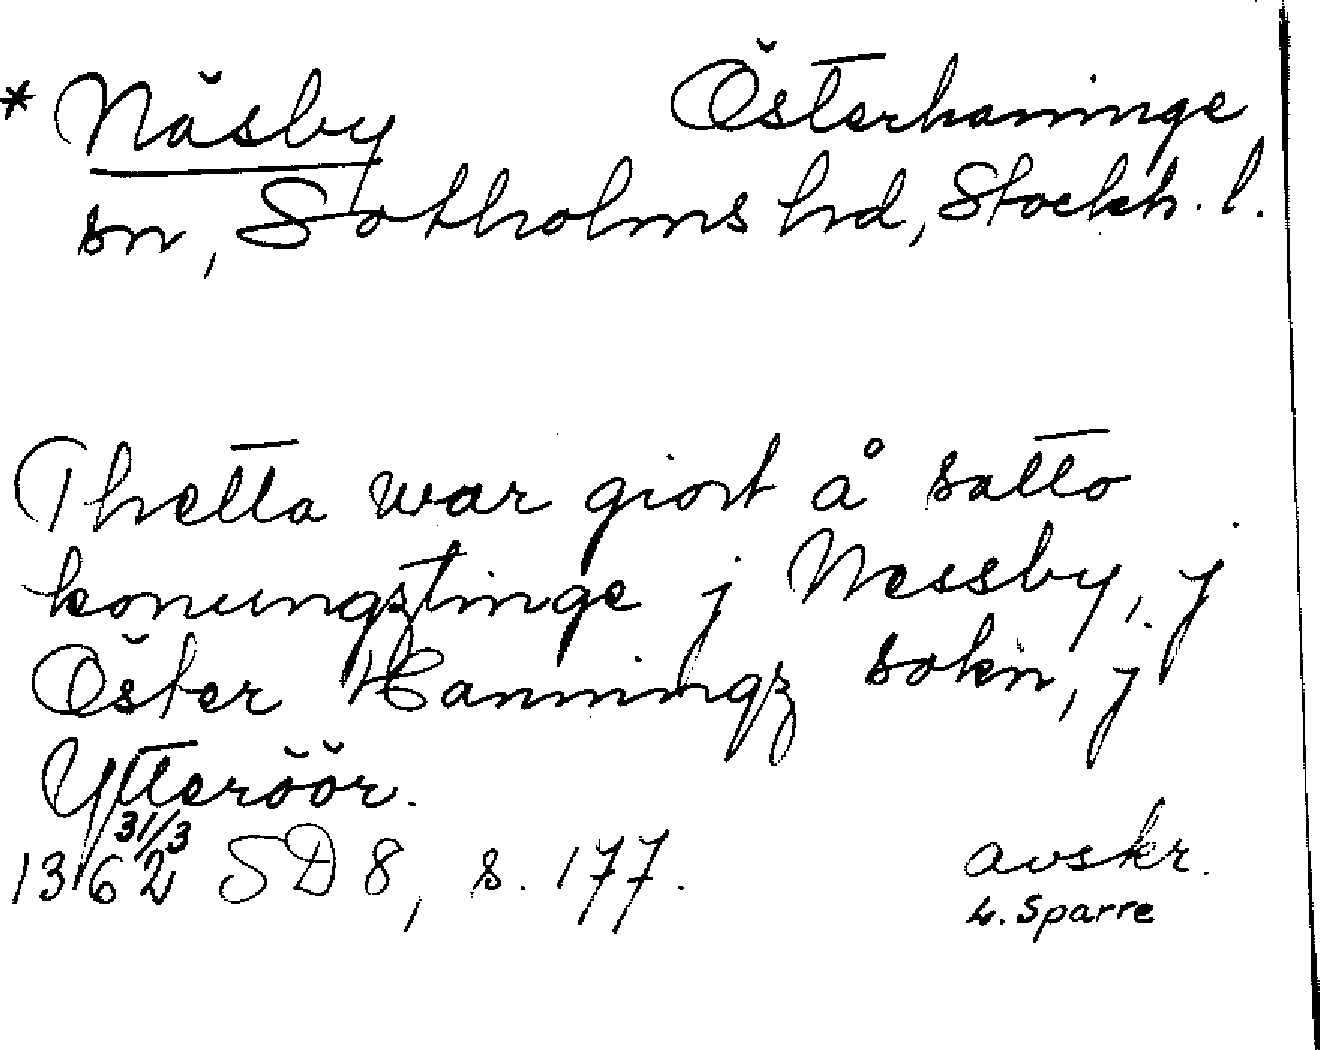 * Näsby Österhaninge
sn, Sotholms hd, Stockh. l.
Thetta war giort å satto
konungztinge j Nessby, j
Öster Hanningz sokn, j
Ytteröör.
1362 31/3 SD 8, s. 177. avskr.
L. Sparre